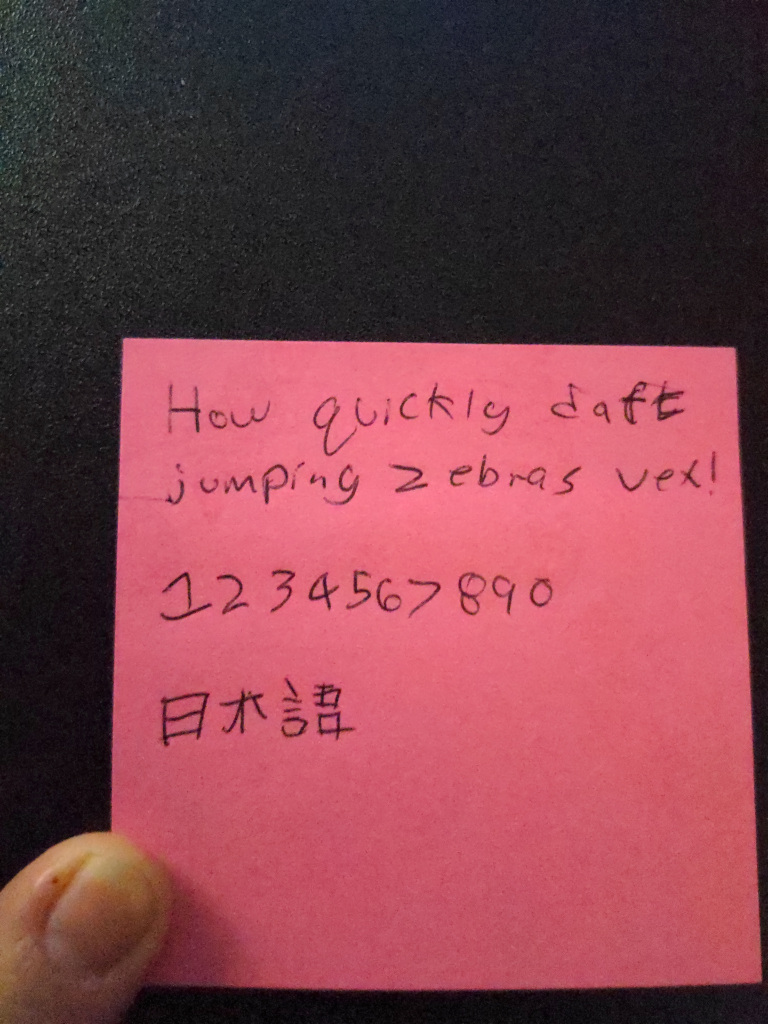 How quickly daft
jumping zebras vex!
1234567890
日本語